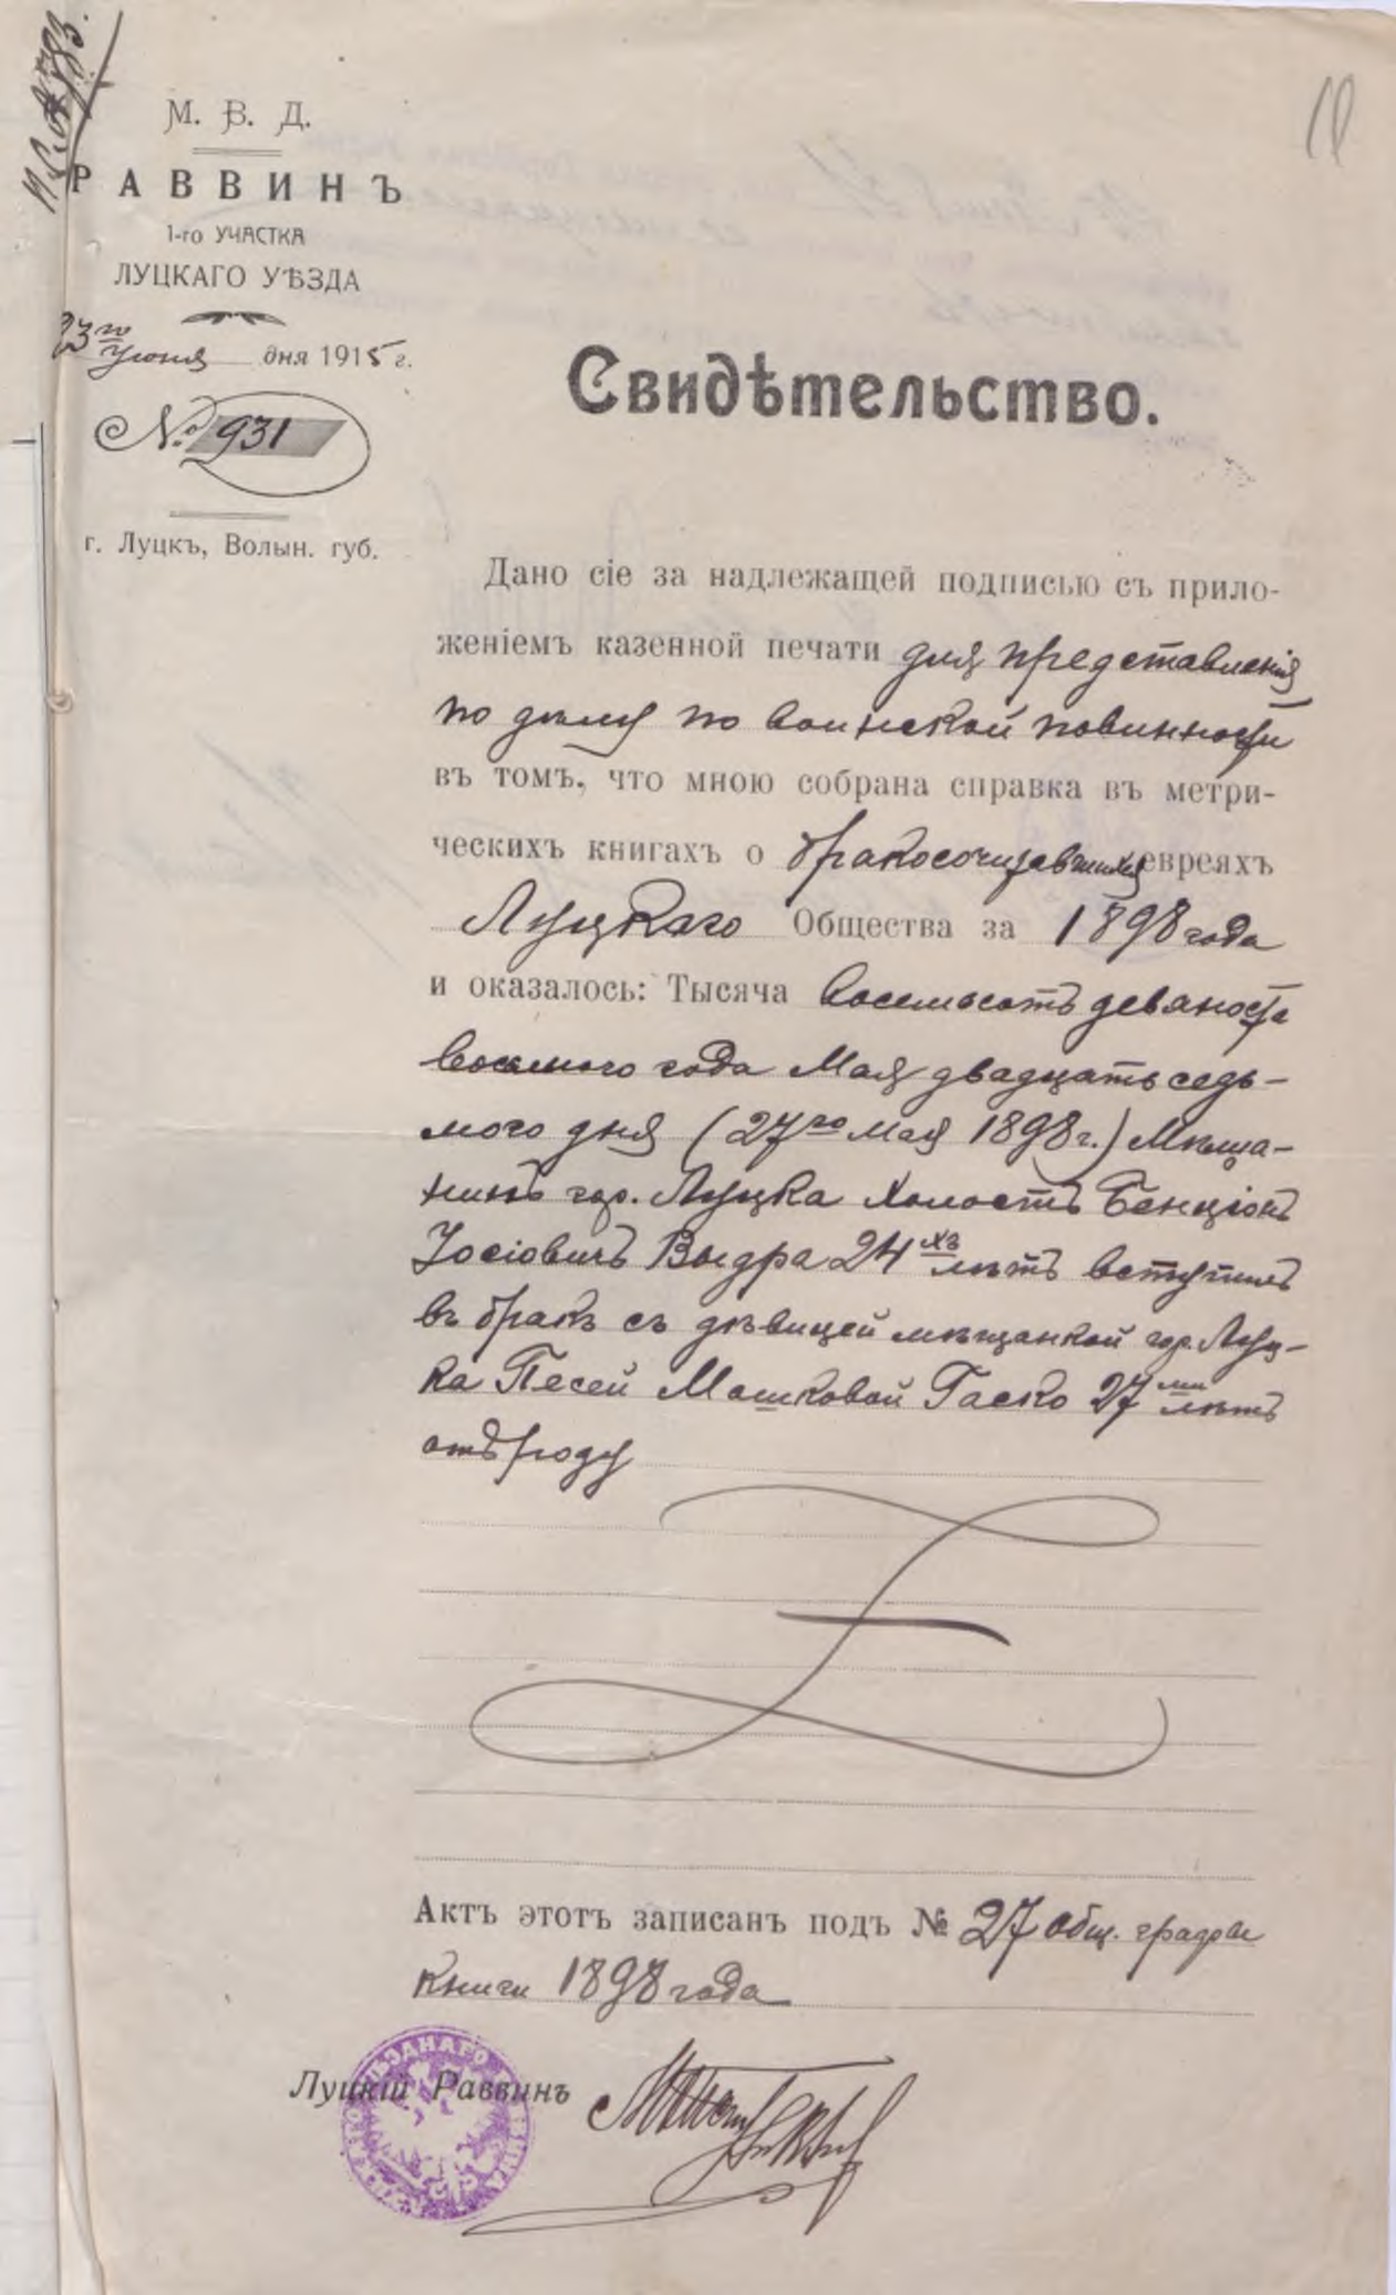 М. В. Д.
РАВВИНЪ
1-го УЧАСТКА
ЛУЦКАГО УѢЗДА
23го Іюня дня 1915 г.
№ 931
г. Луцкъ, Волын. губ.
Свидѣтельство.
Дано сіе за надлежащей подписью съ прило-
женіемъ казенной печати для представленія
по дѣлу по воинской повинности
въ томъ, что мною собрана справка въ метри-
ческихъ книгахъ о бракосочетавшихся евреяхъ
Луцкаго Общества за 1898 года
и оказалось: Тысяча восемьсотъ девяносто
восьмого года Мая двадцать седь-
мого дня (27го мая 1898 г.) Мѣща-
нинъ гор. Луцка холостъ Бенціонъ
Іосіовичъ Выдра 24хъ лѣтъ вступилъ
въ бракъ съ дѣвицей мѣщанкой гор. Луц-
ка Песей Мошковой Гаско 27ми лѣтъ
отъ роду
Актъ этотъ записанъ подъ № 27 общ. графы
книги 1898 года
Луцкій Раввинъ